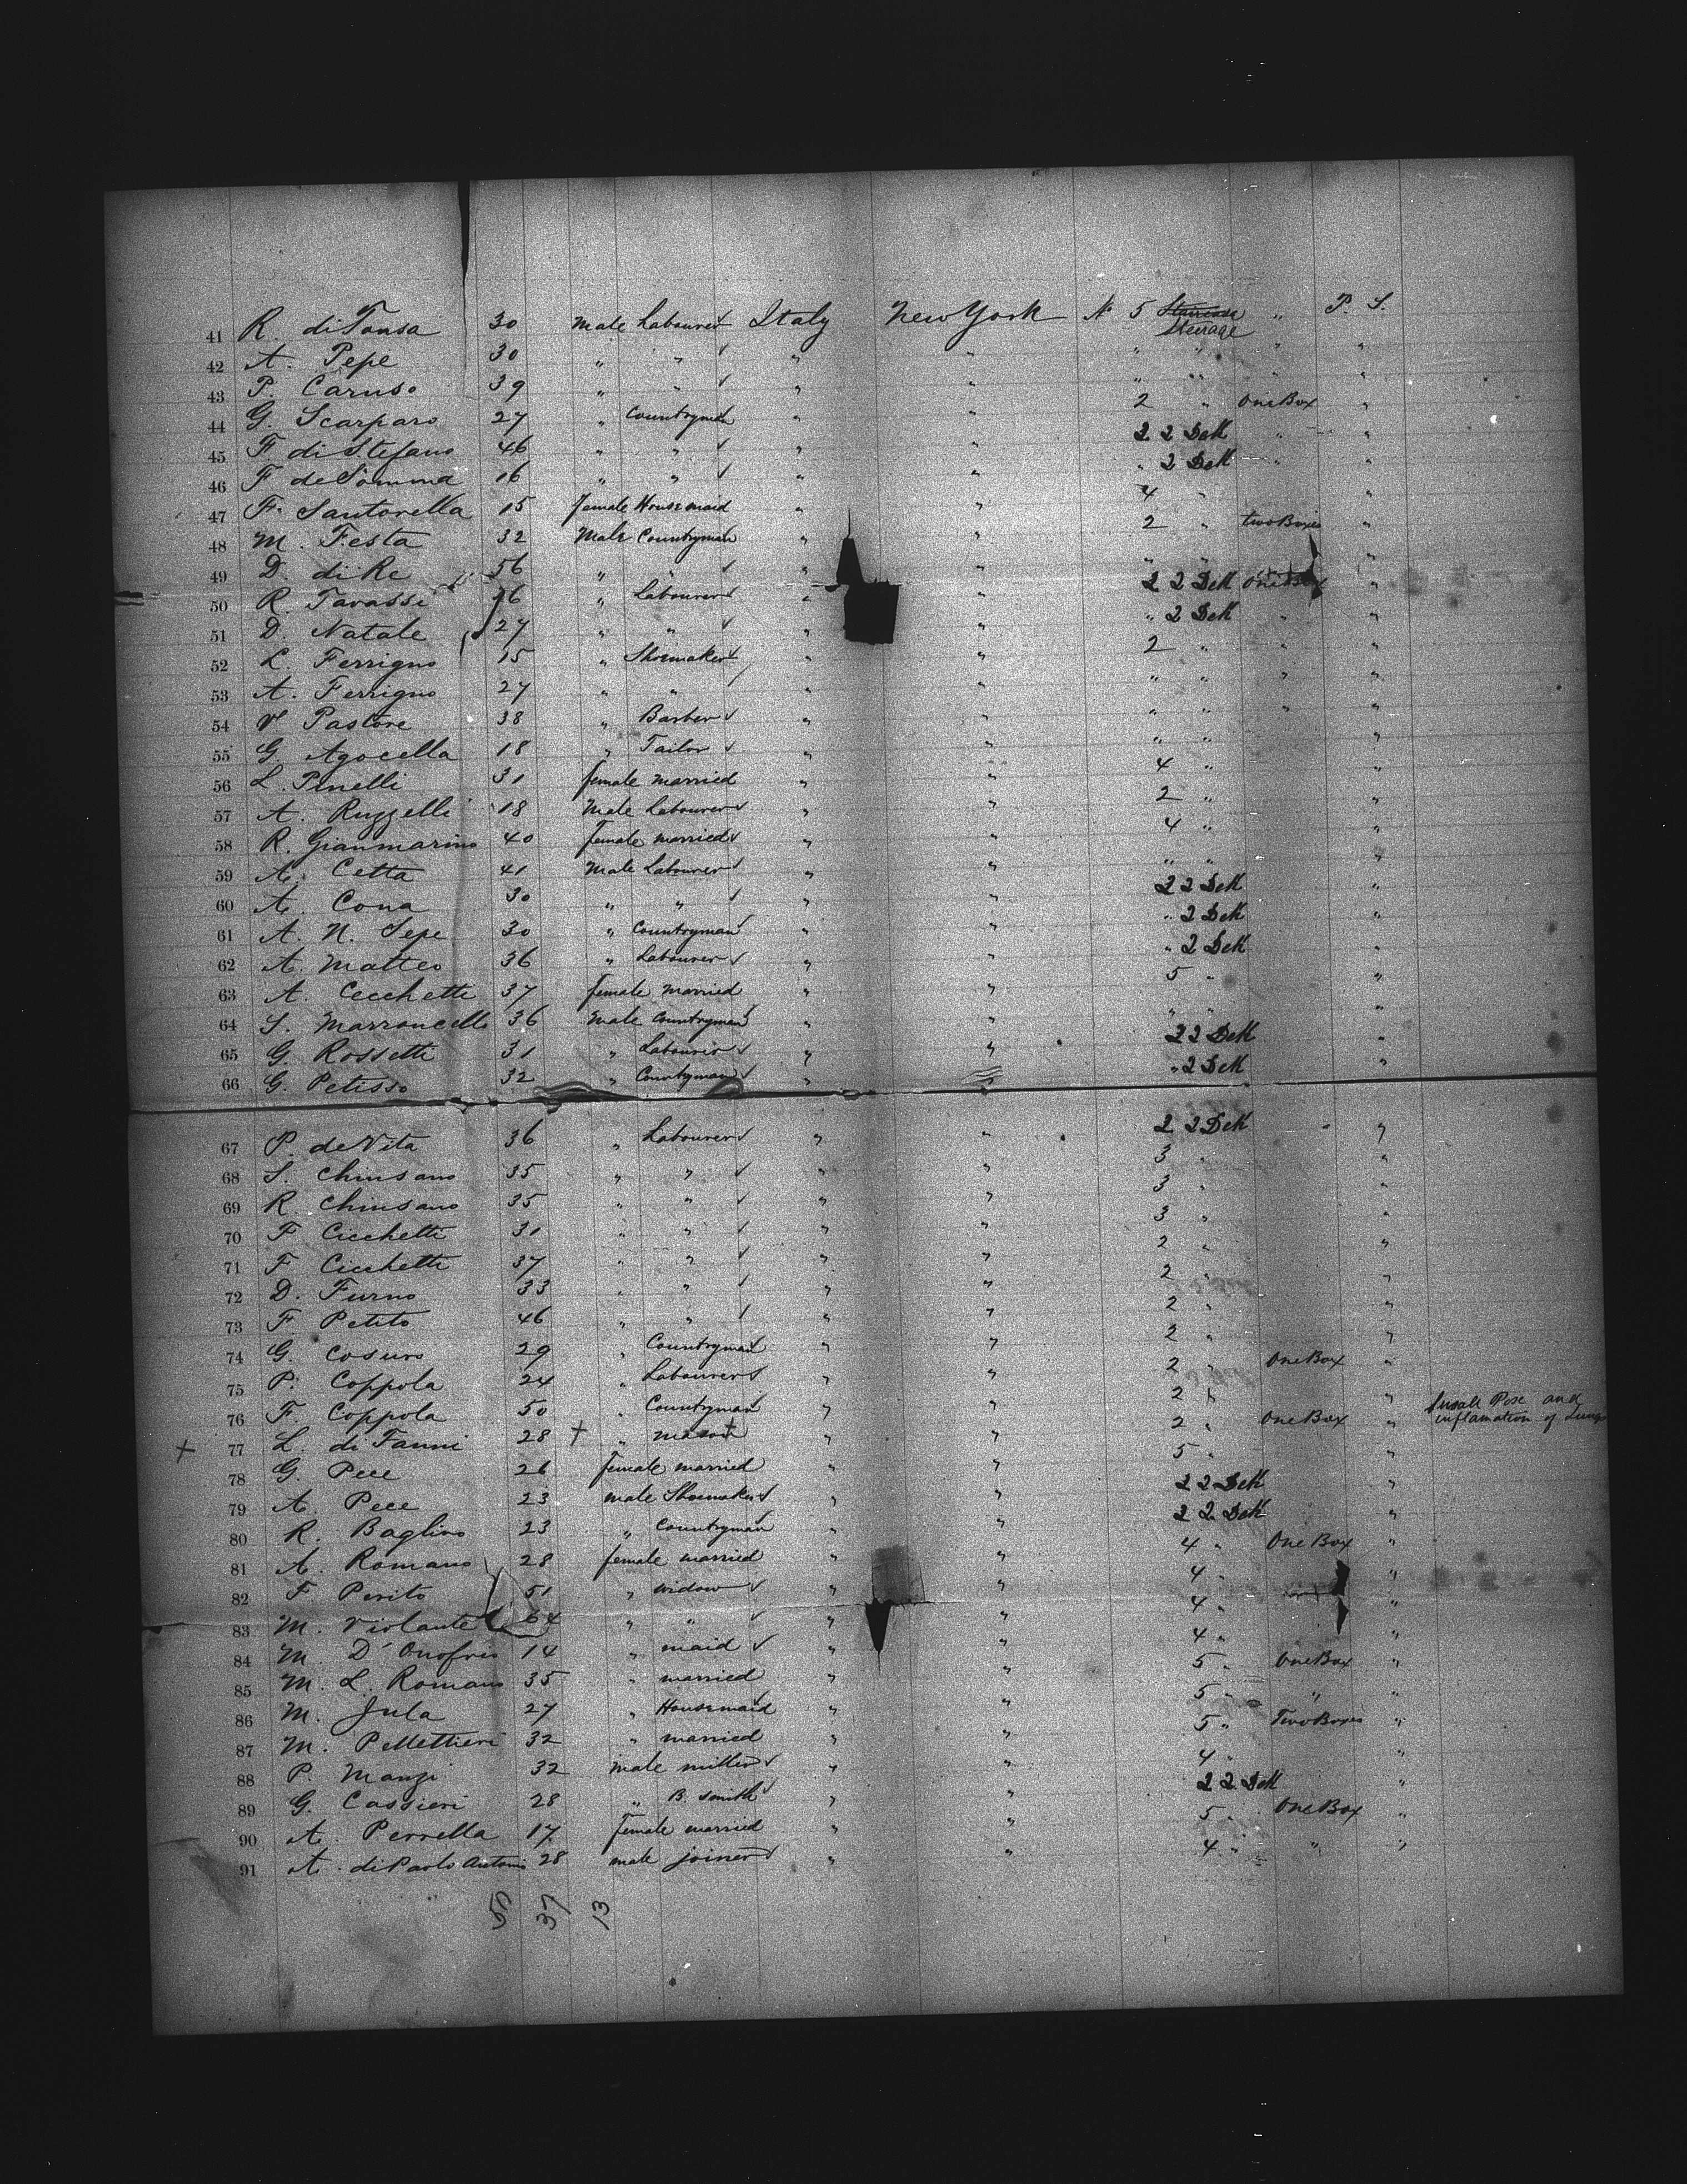 41 R. diTonsa 30 Male Labourer Italy New York N 5 Steerage " P. S.
42 A. Pepe 30 " " " " " " " "
43 P. Caruso 39 " " " " " " " "
44 G. Scarparo 27 " Countryman " " 2 " One Box "
45 F. diStefano 46 " " " " 2 2 Dek " "
46 F deSomma 16 " " " " " 2 Dek " "
47 F. Santorella 15 female Housemaid " " 4 " "
48 M. Festa 32 Male Countryman " " 2 " two Boxes "
49 D. diRe 56 " " " " " " "
50 R. Tavassi " Labourer " " 2 2 Dek One Box "
51 D. Natale 27 " " " " " 2 Dek " "
52 L. Ferrigno 15 " Shoemaker " " 2 " " "
53 A. Ferrigno 27 " " " " " " " "
54 V Pastore 38 " Barber " " " " " "
55 G. Agocella 18 " Tailor " " " " "
56 L. Pinelli 31 female married " " 4 " "
57 A. Ruzzelli 18 Male Labourer " " 2 " "
58 R. Gianmarino 40 female married " " 4 " "
59 A. Cetta 41 Male Labourer " " " " "
60 A. Cona 30 " " " " 2 2 Dek "
61 A. N. Sepe 30 " Countryman " " " 2 Dek "
62 A. Matteo 36 " Labourer " " " 2 Dek "
63 A. Cecchetti 37 female married " " 5 " "
64 S. Marroncelli 36 Male Countryman " " " " "
65 G. Rossetti 31 " Labourer " " 2 2 Dek "
66 G. Petisso 32 " Countryman " " " 2 Dek "
67 P. deVita 36 " Labourer " " 2 2 Dek " "
68 S. Chinsano 35 " " " " 3 " "
69 R. Chinsano 35 " " " " 3 " "
70 F Cicchetti 31 " " " " 3 " "
71 F Cicchetti 37 " " " " 2 " "
72 D. Furno 33 " " " " 2 " "
73 F Petito 46 " " " " 2 " "
74 G. Cosuro 29 " Countryman " " 2 " "
75 P. Coppola 24 " Labourer " " 2 " One Box "
76 F. Coppola 50 " Countryman " " 2 " "
+ 77 L. diFanni 28 + " mason " " 2 " One Box " Small Pox and
inflamation of Lungs
78 G. Pece 26 Female married " " 5 " "
79 A. Pece 23 male Shoemaker " " 2 2 Dek "
80 R. Baglivo 23 " Countryman " " 2 2 Dek "
81 A. Romano 28 female married " " 4 " One Box "
82 F. Perito 51 " widow " " 4 " "
83 M. Violante 64 " " " " 4 " "
84 M. D'Onofrio 14 " maid " " 4 " "
85 M. L. Romano 35 " married " " 5 " One Box "
86 M. Jula 27 " Housemaid " " 5 " " "
87 M. Pellettieri 32 " married " " 5 " Two Boxes "
88 P. Manzi 32 male miller " " 4 " "
89 G. Cassieri 28 " B. smith " " 2 2 Dek "
90 A. Perrella 17 female married " " 5 " One Box "
91 A. diPaolo Antonio 28 male joiner " " 4 " " "
50 37 13